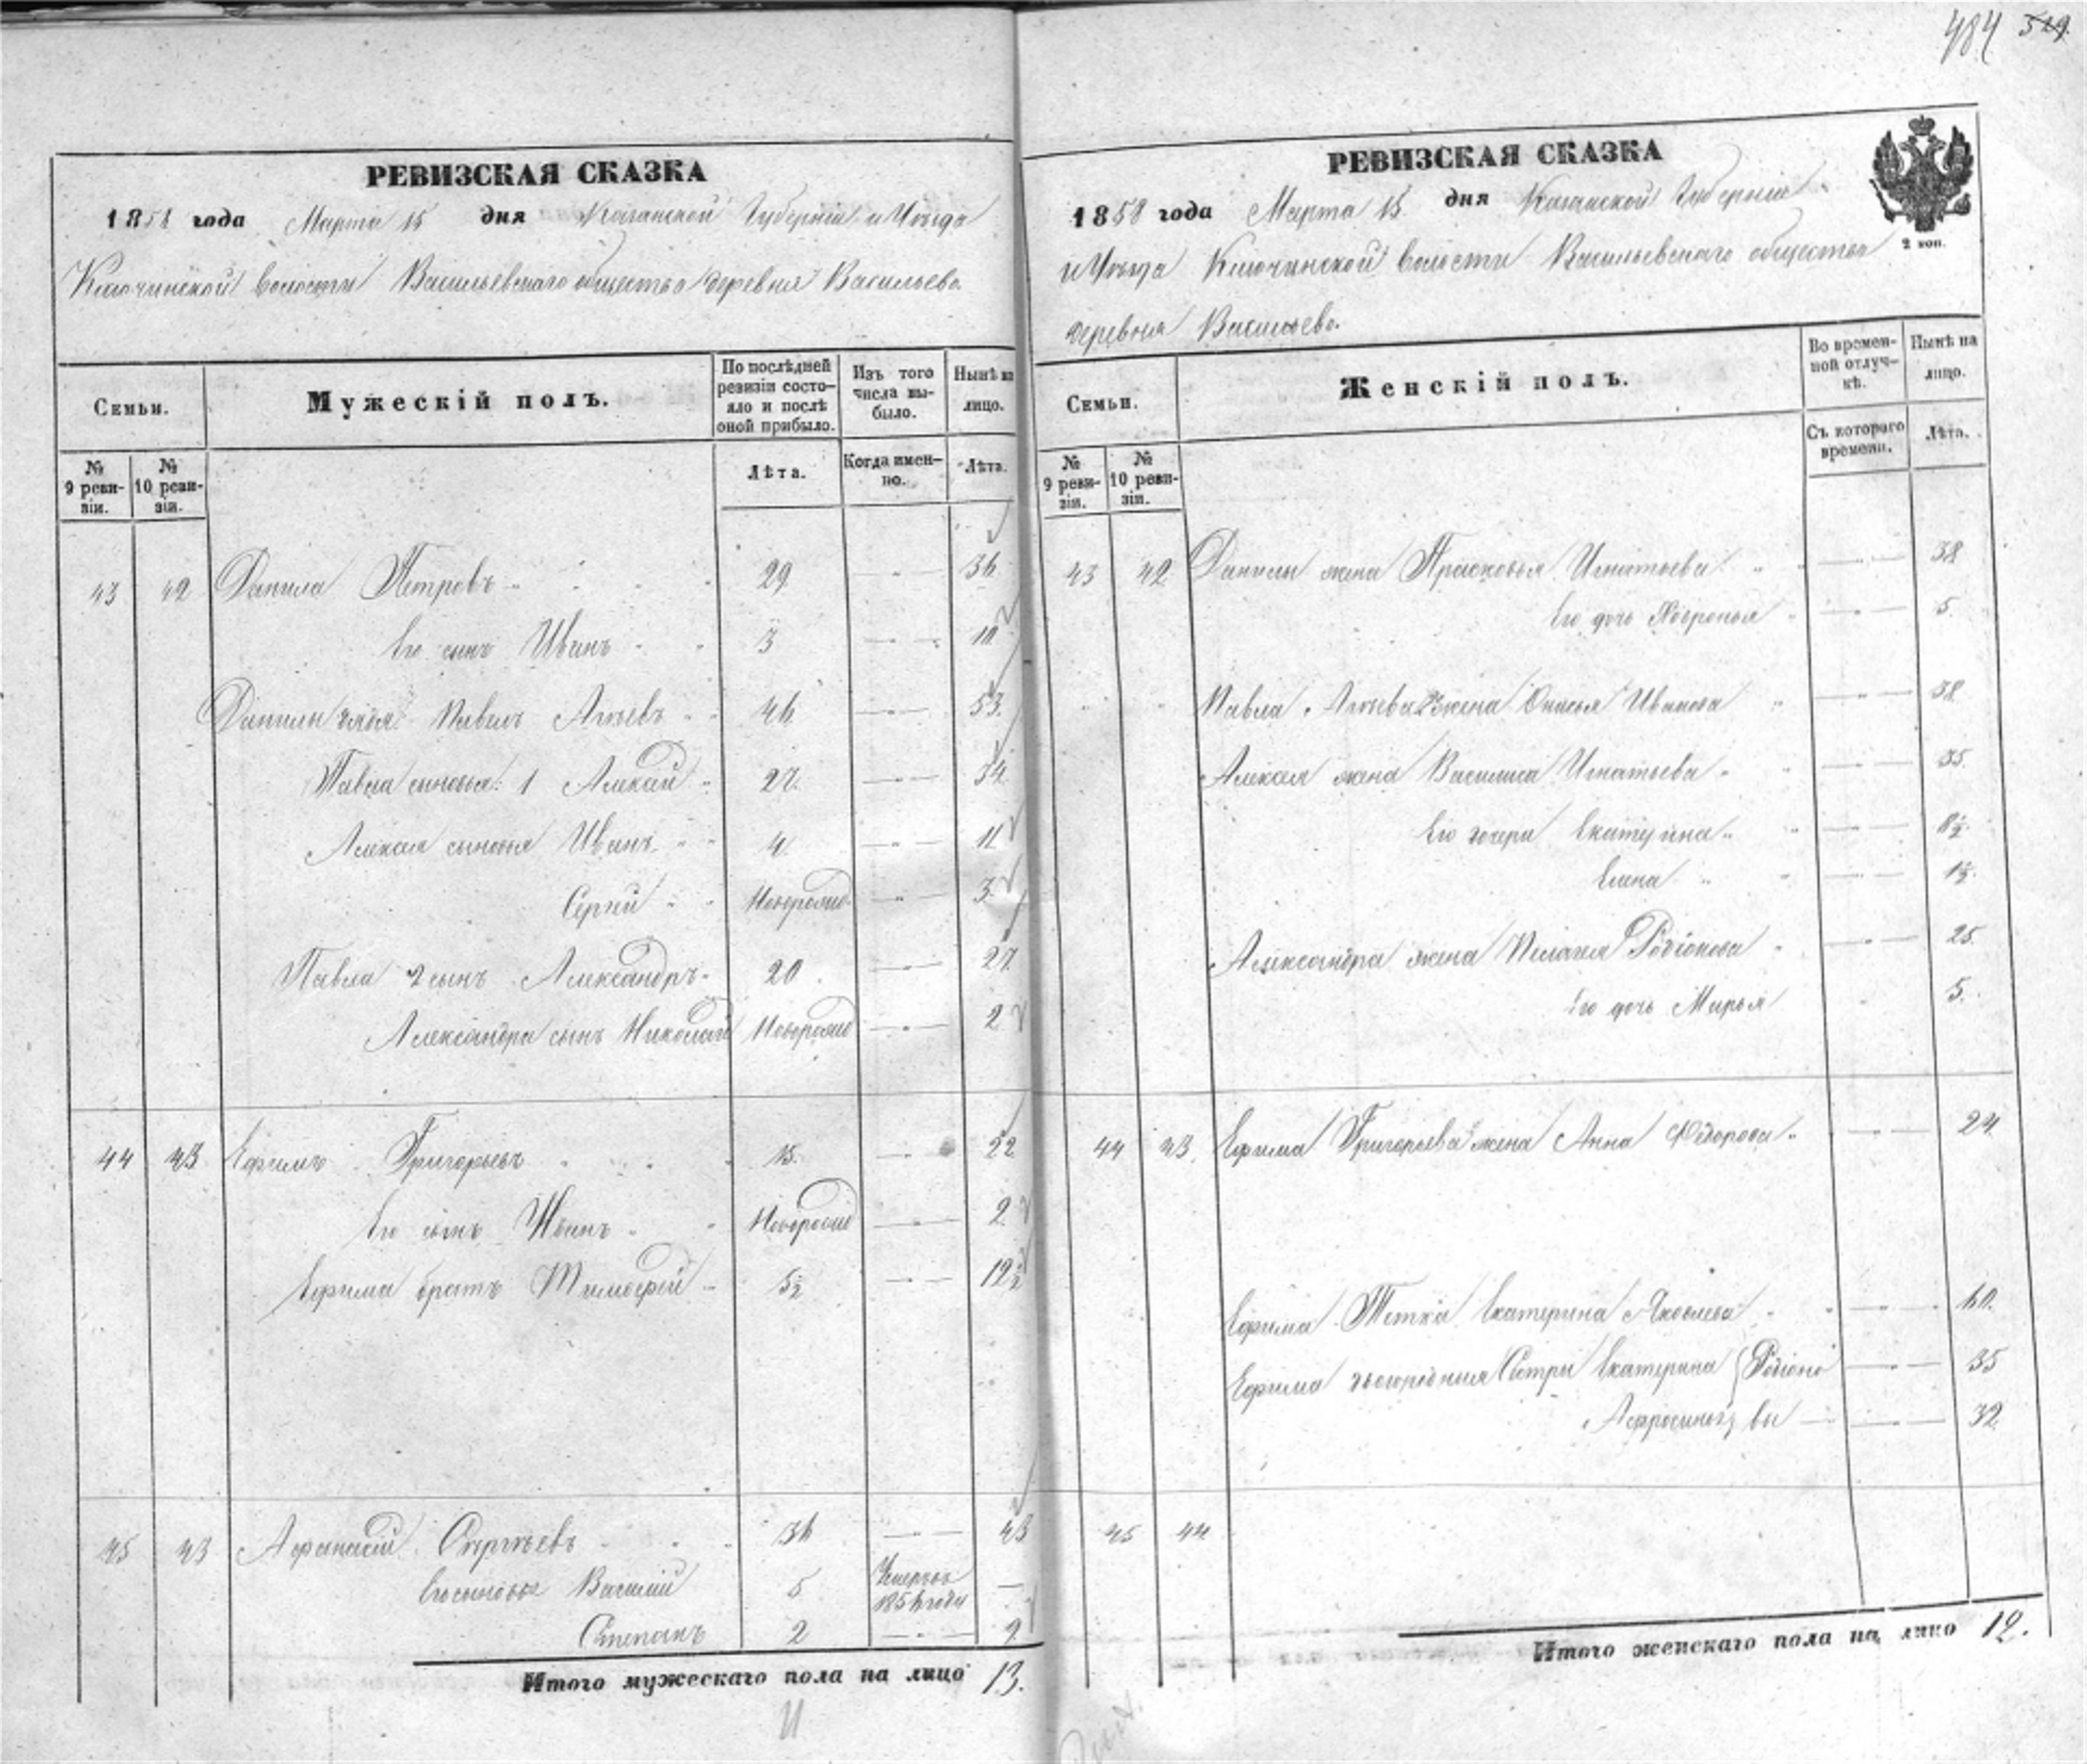 484 519
РЕВИЗСКАЯ СКАЗКА
1858 года Марта 15 дня Казанской Губерніи и Уѣзда
Ключинской Волости Васильевскаго общества деревня Васильево.
Семьи.
Мужескій полъ.
По послѣдней ревизіи состояло и послѣ оной прибыло.
Изъ того числа выбыло.
Нынѣ на лицо.
№ 9 ревизіи.
№ 10 ревизіи.
Лѣта.
Когда именно.
Лѣта.
43 42 Данила Петровъ 29 36
Его сынъ Иванъ 3 10
Данилы дядя Павелъ 46 53.
Павла сыновья: 1 Алексѣй 27. 34.
Алексѣя сыновья Иванъ 4 11
Сергѣй Новорожд 3.
Павла 2 сынъ Александръ 20 27.
Александра сынъ Николай Новорожд 2
44 43 Ефимъ Григорьевъ 15. 22
Его сынъ Иванъ Новорожд 2
Ефима братъ Тимофей 5½ 12½
45 43 Афанасій Сергѣевъ 36 43
Его сыновья Василій 5 Умеръ въ
Степанъ 2 9
Итого мужескаго пола на лицо 13.
РЕВИЗСКАЯ СКАЗКА
1858 года Марта 15 дня Казанской Губерніи
и Уѣзда Ключинской Волости Васильевскаго общества
деревня Васильево.
2 коп.
Семьи.
Женскій полъ.
Во временной отлучкѣ.
Нынѣ на лицо.
№ 9 ревизіи.
№ 10 ревизіи.
Съ котораго времени.
Лѣта.
43 42 Данилы жена Прасковья Игнатьева 38
Его дочь 5.
Павла жена Иванова 38
Алексѣя жена Василиса Игнатьева 35
Его дочери Екатерина 8½
Елена 1½
Александра жена Пелагея Родіонова 25.
Его дочь Марья 5.
44 43 Ефима Григорьева жена Анна Федорова 24
Ефима Тетка Екатерина Яковлева 60.
Ефима двоюродныя Сестры Екатерина Родіоно 35
вы 32
45 44
Итого женскаго пола на лицо 12.